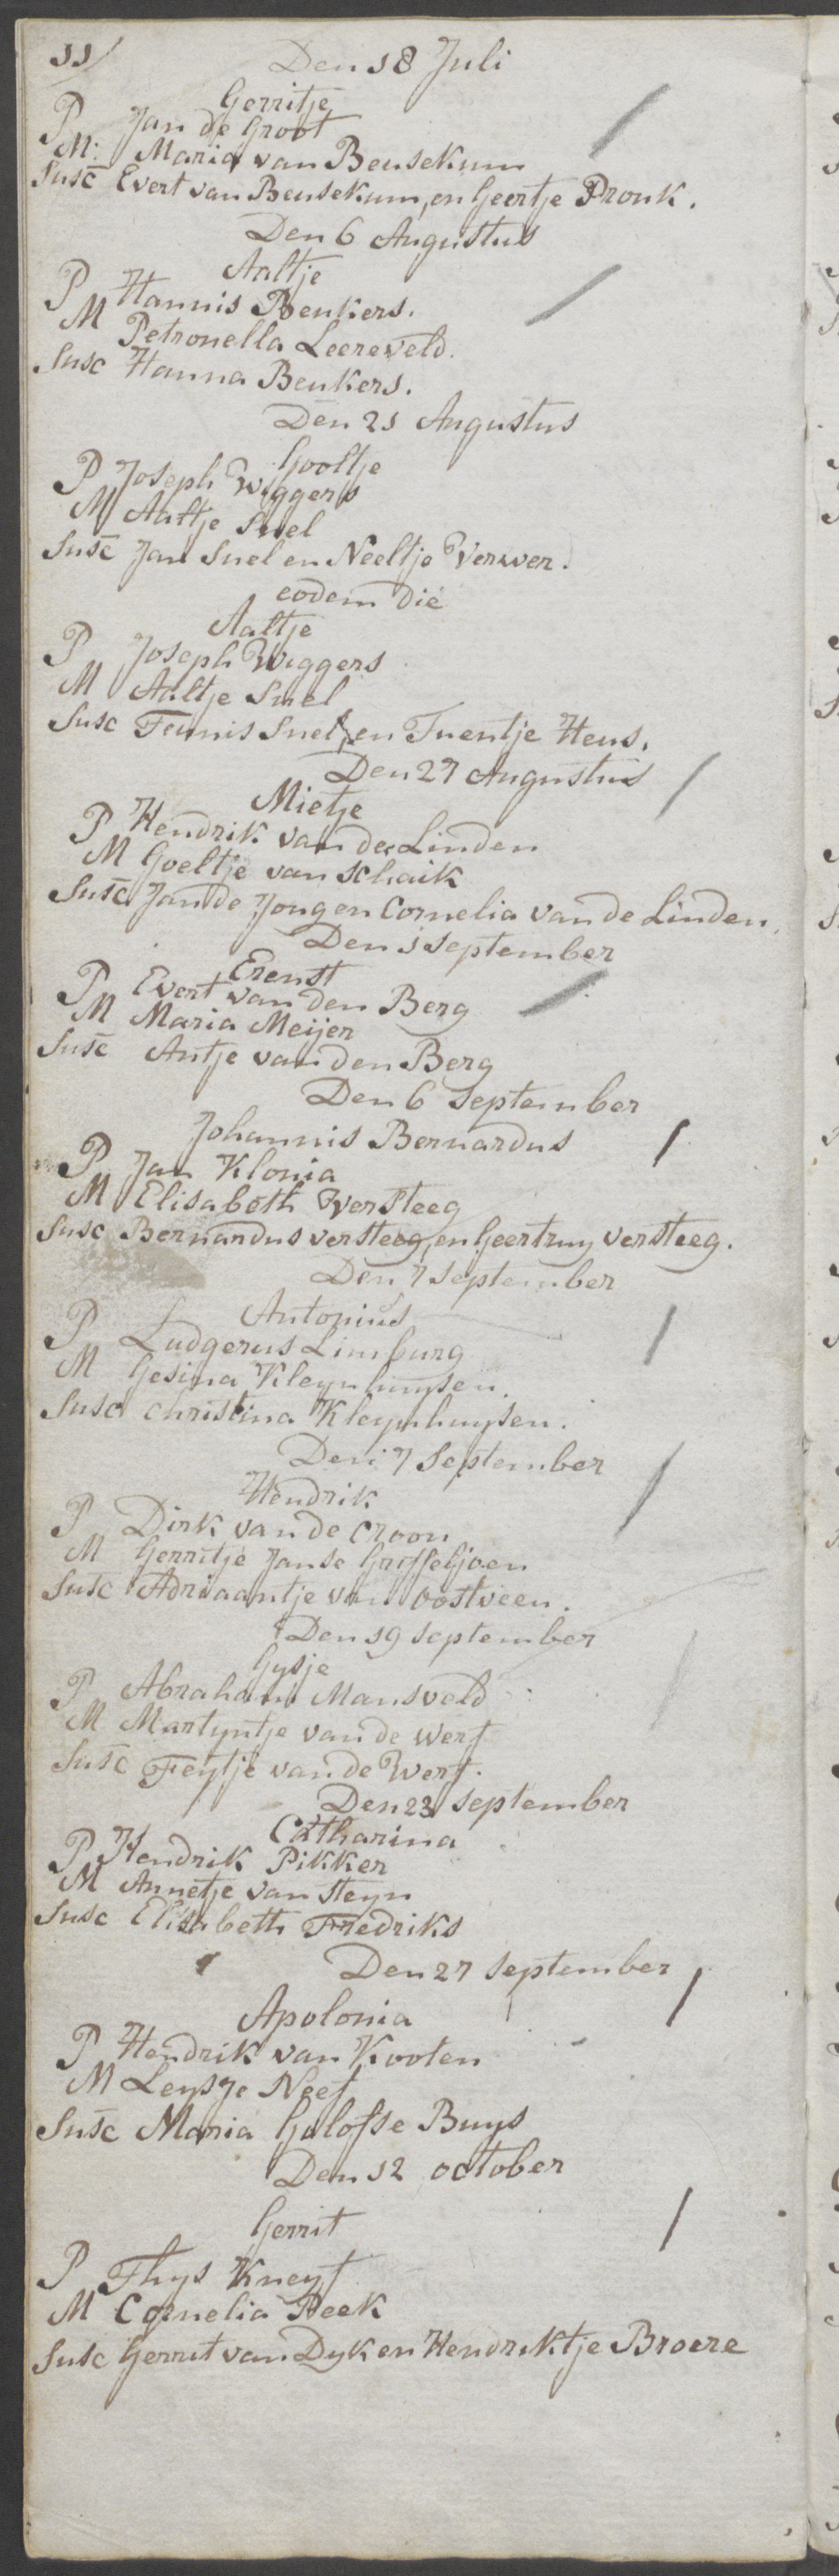 11/
Den 18 Juli
Gerritje
P Jan de Groot
M: Maria van Beusekum
Susc Evert van Beusekum, en Geertje Pronk.
Den 6 Augustus
Aaltje
P Hannis Beukers.
M Petronella Leereveld.
Susc Hanna Beukers.
Den 21 Augustus
Gooltje
P Joseph Wiggers
M Aaltje Snel
Susc Jan Snel en Neeltje Verwer.
eodem die
Aaltje
P Joseph Wiggers
M Aaltje Snel
Susc Teunis Snel, en Tuentje Heus.
Den 27 Augustus
Mietje
P Hendrik van der Linden
M Goeltje van Schaik
Susc Jan de Jong en Cornelia van de Linden.
Den 1 September
Erenst
P Evert van den Berg
M Maria Meijer
Susc Antje van den Berg
Den 6 September
Johannis Bernardus
P Jan Klonia
M Elisabeth Versteeg
Susc Bernardus versteeg, en Geertruy versteeg.
Den 7 September
Antonius
P Ludgerus Limburg
M Gesina Kleynhuysen.
Susc Christina Kleynhuysen.
Den 7 September
Hendrik
P Dirk van de Croon
M Gerritje Janse Griffeljoen
Susc Adriaantje van Oostveen.
Den 19 September
Gysje
P Abraham Mansveld
M Martyntje van de Werf
Susc Feytje van de Werf.
Den 23 September
Catharina
P Hendrik Pikker
M Annetje van Steyn
Susc Elisabeth Fredriks
Den 27 September
Apolonia
P Hendrik van Kooten
M Leysje Neef
Susc Maria Golofse Buys
Den 12 october
Gerrit
P Thys Kneyf
M Cornelia Peek
Susc Gerrit van Dyk en Hendriktje Broere